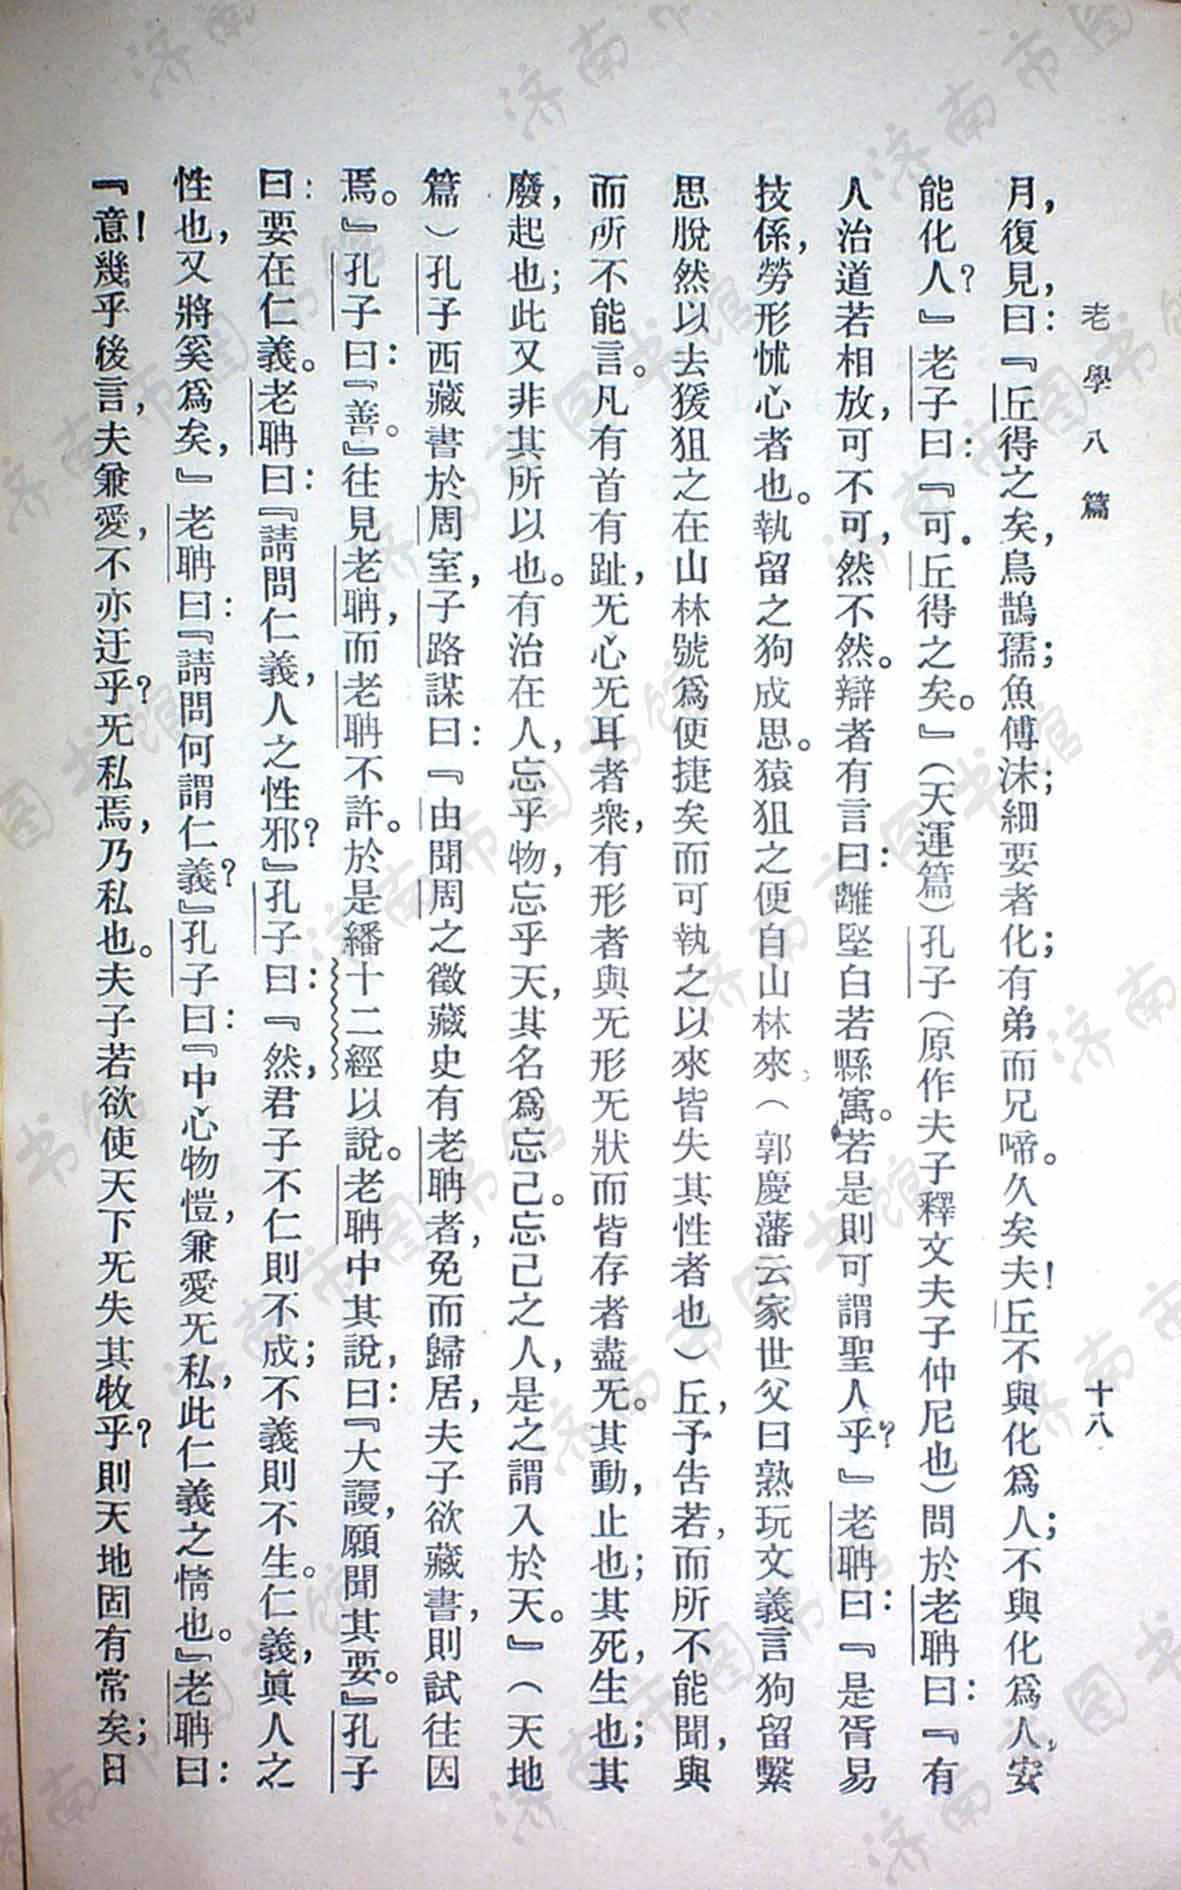 老學八篇
十八
月，復見，曰：『丘得之矣，鳥鵲孺；魚傅沫；細要者化；有弟而兄啼。久矣夫！丘不與化爲人；不與化爲人，安
能化人？』老子曰：『可．丘得之矣。』（天運篇）孔子（原作夫子釋文夫子仲尼也）問於老聃曰：『有
人治道若相放，可不可，然不然。辯者有言曰：離堅白若縣寓。若是則可謂聖人乎？』老聃曰：『是胥易
技係，勞形怵心者也。執留之狗成思。猿狙之便自山林來；（郭慶藩云家世父曰熟玩文義言狗留繫
思脫然以去猨狙之在山林號爲便捷矣而可執之以來皆失其性者也）丘，予告若，而所不能聞，與
而所不能言。凡有首有趾，无心无耳者衆，有形者與无形无狀而皆存者盡无。其動，止也；其死，生也；其
廢，起也；此又非其所以也。有治在人，忘乎物，忘乎天，其名爲忘己。忘己之人，是之謂入於天。』（天地
篇）孔子西藏書於周室，子路謀曰：『由聞周之徵藏史有老聃者，免而歸居，夫子欲藏書，則試往因
焉。』孔子曰：『善。』往見老聃，而老聃不許。於是繙十二經以說。老聃中其說，曰：『大謾，願聞其要。』孔子
曰：要在仁義。老聃曰：『請問仁義，人之性邪？』孔子曰：『然，君子不仁則不成；不義則不生。仁義，眞人之
性也，又將奚爲矣，』老聃曰：『請問何謂仁義？』孔子曰：『中心物愷，兼愛无私，此仁義之情也。』老聃曰：
『意！幾乎後言，夫兼愛，不亦迂乎？无私焉，乃私也。夫子若欲使天下无失其牧乎？則天地固有常矣；日